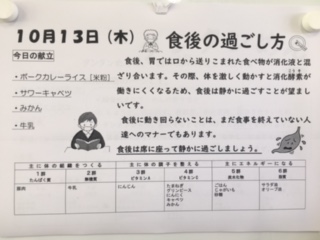 10月13日(木) 食後の過ごし方
今日の献立
・ポークカレーライス [米粉]
・サワーキャベツ
・みかん
・牛乳
食後、胃では口から送りこまれた食べ物が消化液と混
ざり合います。その際、体を激しく動かすと消化酵素が
働きにくくなるため、食後は静かに過ごすことが望まし
いです。
食後に動き回らないことは、まだ食事を終えていない人
達へのマナーでもあります。
食後は席に座って静かに過ごしましょう。
主に体の組織をつくる 主に体の調子を整える 主にエネルギーになる
1群 2群 3群 4群 5群 6群
たんぱく質 無機質 ビタミンA ビタミンC 炭水化物 脂質
豚肉 牛乳 にんじん たまねぎ ごはん サラダ油
グリンピース じゃがいも オリーブ油
にんにく 砂糖
キャベツ
みかん